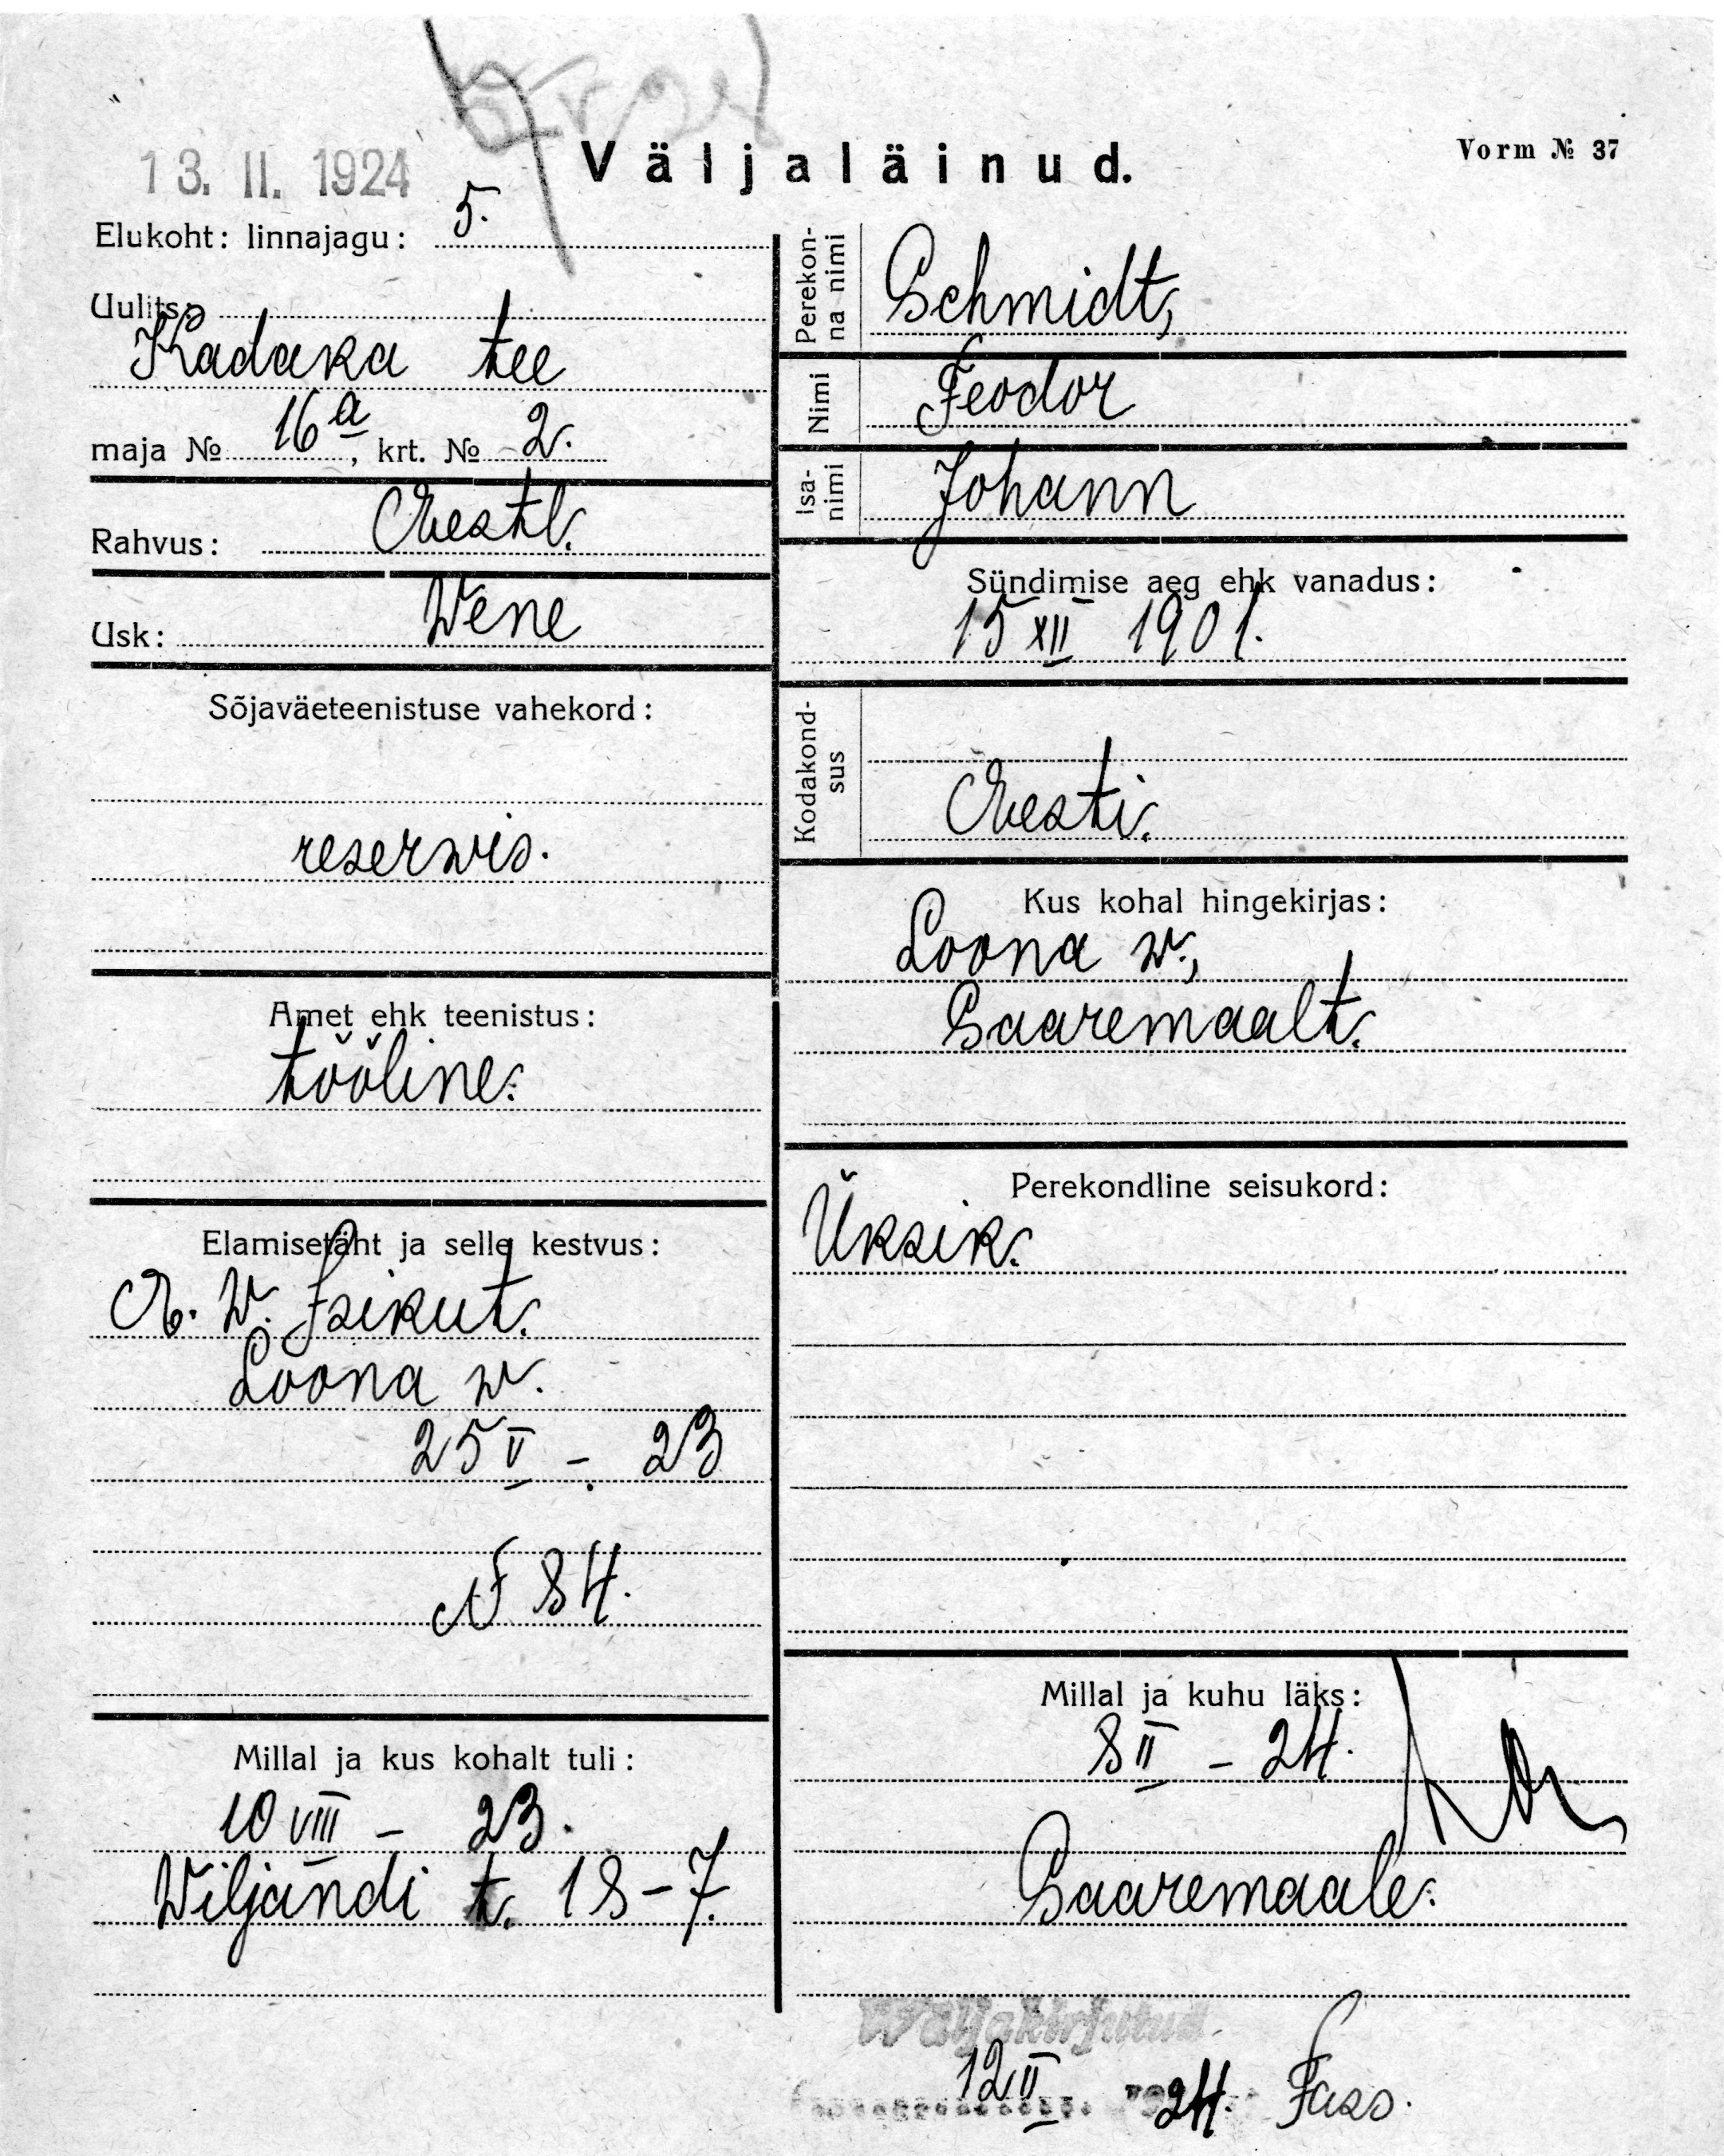 13. II. 1924
Väljaläinud.
Vorm № 37
Elukoht: linnajagu: 5.
Uulits:
Kadaka tee
maja № 16a, krt. № 2.
Rahvus: Eestl.
Usk: Wene
Sõjaväeteenistuse vahekord:
reserwis.
Amet ehk teenistus:
tööline.
Elamisetäht ja selle kestvus:
E. W. Isikut.
Loona w.
25 V - 23
N 84.
Millal ja kus kohalt tuli:
10 VIII - 23.
Wiljandi t. 18-7.
Perekonna nimi
Schmidt,
Nimi
Feodor
Isanimi
Johann
Sündimise aeg ehk vanadus:
15 XII 1901.
Kodakondsus
Eesti.
Kus kohal hingekirjas:
Loona w.,
Saaremaalt.
Perekondline seisukord:
Üksik.
Millal ja kuhu läks:
8 II - 24.
Saaremaale.
Wäljakirjutud
12 II 24.